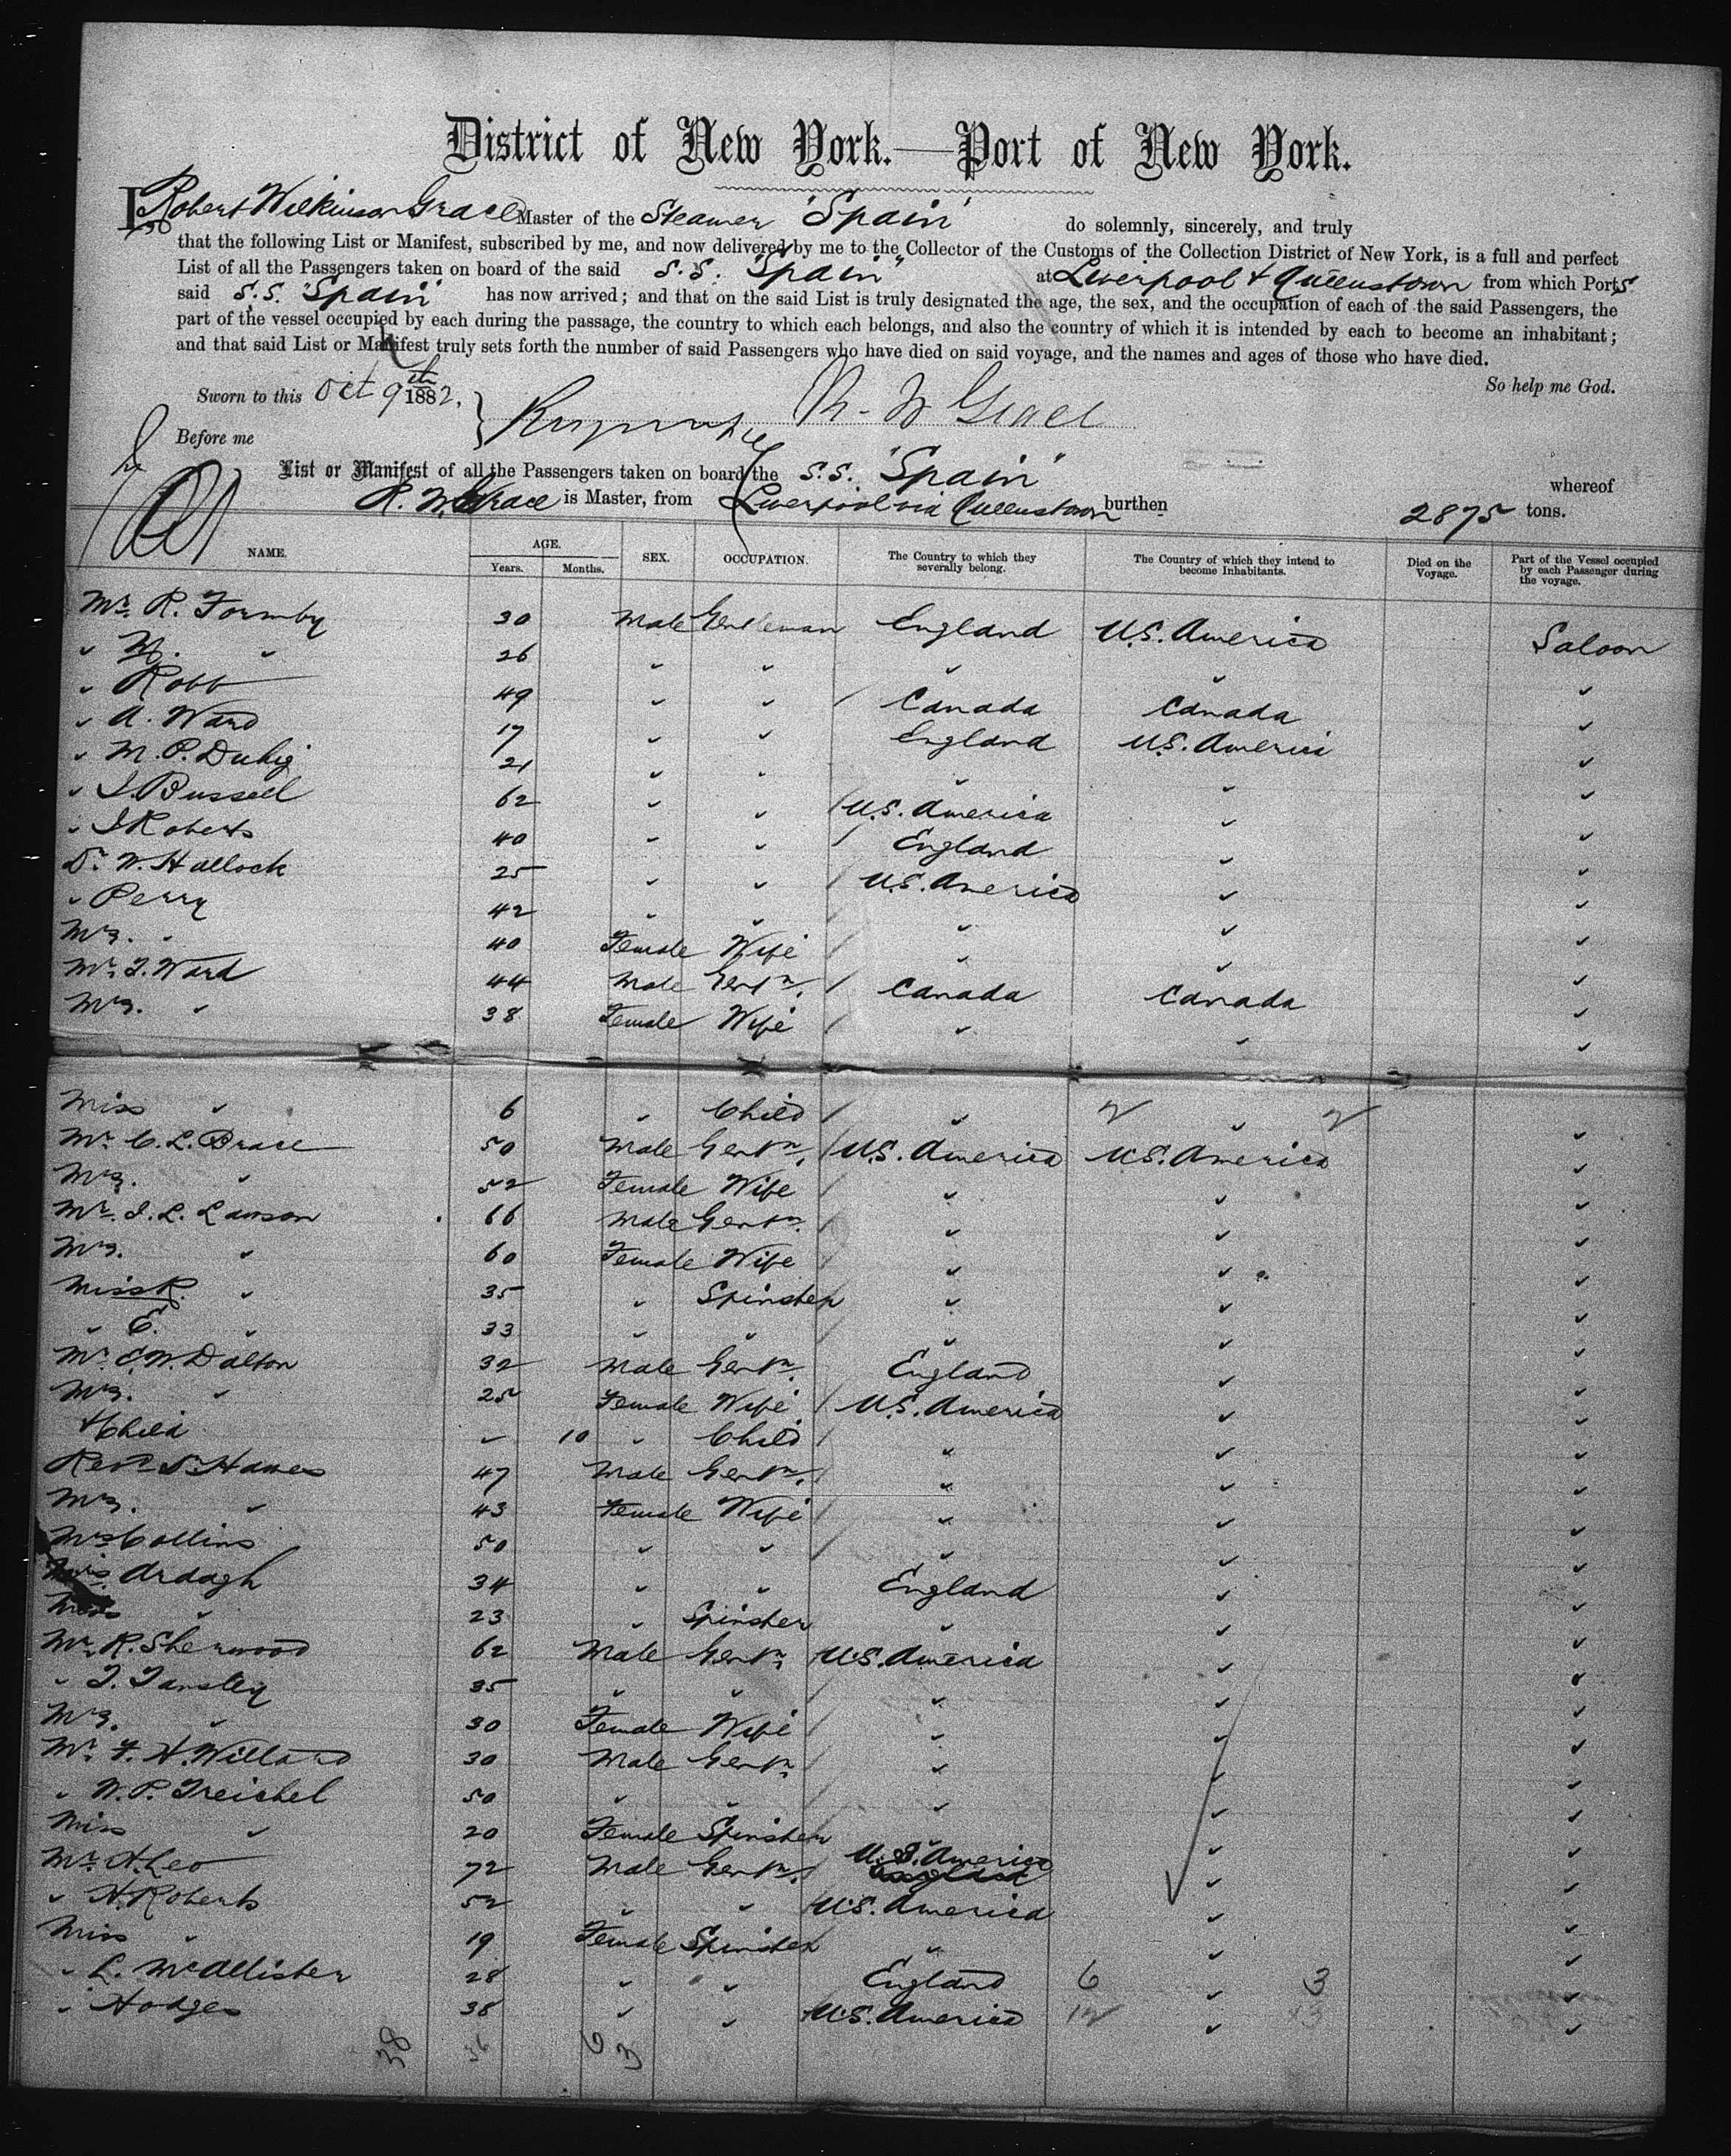 District of New York.—Port of New York.
I, Robert Wilkinson Grace Master of the Steamer "Spain" do solemnly, sincerely, and truly
that the following List or Manifest, subscribed by me, and now delivered by me to the Collector of the Customs of the Collection District of New York, is a full and perfect
List of all the Passengers taken on board of the said S.S. "Spain" at Liverpool & Queenstown from which Ports
said S.S. "Spain" has now arrived; and that on the said List is truly designated the age, the sex, and the occupation of each of the said Passengers, the
part of the vessel occupied by each during the passage, the country to which each belongs, and also the country of which it is intended by each to become an inhabitant;
and that said List or Manifest truly sets forth the number of said Passengers who have died on said voyage, and the names and ages of those who have died.
So help me God.
Sworn to this Oct 9th 1882, R. W Grace
Before me
List or Manifest of all the Passengers taken on board the S.S. "Spain" whereof
R. W. Grace is Master, from Liverpool via Queenstown burthen 2875 tons.
NAME. AGE. SEX. OCCUPATION. The Country to which they severally belong. The Country of which they intend to become Inhabitants. Died on the Voyage. Part of the Vessel occupied by each Passenger during the voyage.
Years. Months.
Mr. R. Formby 30 Male Gentleman England U.S. America Saloon
" W. " 26 " " " " "
" Robb 49 " " Canada Canada "
" A. Ward 17 " " England U.S. America "
" M. P. Duhig 21 " " " " "
" J. Bussell 62 " " U.S. America " "
" J Roberts 40 " " England " "
Dr. W. Hallock 25 " " U.S. America " "
" Perry 42 " " " " "
Mrs. " 40 Female Wife " " "
Mr. J. Ward 44 Male Gentn. Canada Canada "
Mrs. " 38 Female Wife " " "
Miss " 6 " Child " " "
Mr. C. L. Brace 50 Male Gentn. U.S. America U.S. America "
Mrs. " 52 Female Wife " " "
Mr. J. L. Lawson 66 Male Gentn. " " "
Mrs. " 60 Female Wife " " "
Miss R. " 35 " Spinster " " "
" E. " 33 " " " " "
Mr. C. W. Dalton 32 Male Gentn. England " "
Mrs. " 25 Female Wife U.S. America " "
+ Child " 10 " Child " " "
Revd. S. Hawes 47 Male Gentn. " " "
Mrs. " 43 Female Wife " " "
Mrs Collins 50 " " " " "
Mrs. Ardagh 34 " " England " "
Miss " 23 " Spinster " " "
Mr. R. Sherwood 62 Male Gentn. U.S. America " "
" T. Tansley 35 " " " " "
Mrs. " 30 Female Wife " " "
Mr. F. H. Willard 30 Male Gentn. " " "
" W. P. Treichel 50 " " " " "
Miss " 20 Female Spinster " " "
Mr. H. Leo 72 Male Gentn. U.S. America " "
" H. Roberts 52 " " U.S. America " "
Miss " 19 Female Spinster " " "
" L. McAllister 28 " " England 6 " 3 "
" Hodges 38 " " U.S. America 12 " 13 "
38 36 6 3